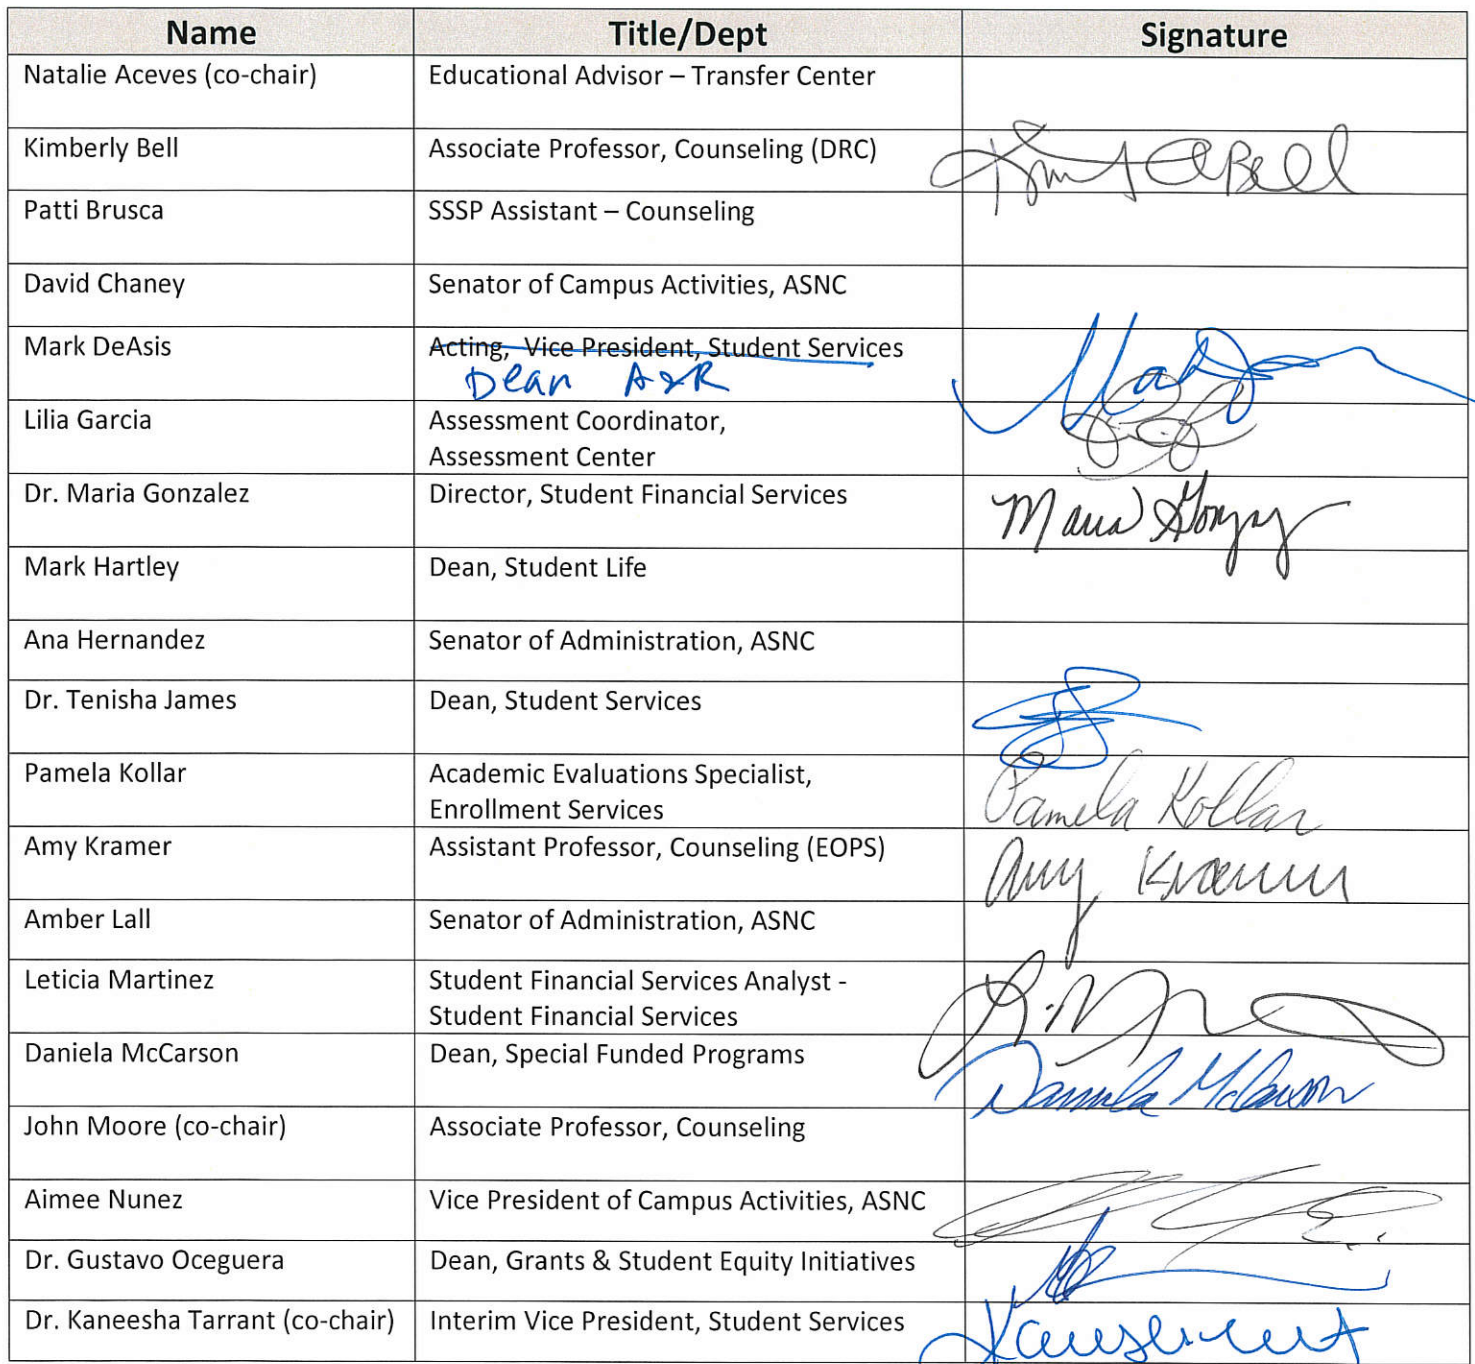 Name Title/Dept Signature
Natalie Aceves (co-chair) Educational Advisor – Transfer Center
Kimberly Bell Associate Professor, Counseling (DRC)
Patti Brusca SSSP Assistant – Counseling
David Chaney Senator of Campus Activities, ASNC
Mark DeAsis Acting, Vice President, Student Services
Dean A&R
Lilia Garcia Assessment Coordinator,
Assessment Center
Dr. Maria Gonzalez Director, Student Financial Services
Mark Hartley Dean, Student Life
Ana Hernandez Senator of Administration, ASNC
Dr. Tenisha James Dean, Student Services
Pamela Kollar Academic Evaluations Specialist, Pamela Kollar
Enrollment Services
Amy Kramer Assistant Professor, Counseling (EOPS) Amy Kramer
Amber Lall Senator of Administration, ASNC
Leticia Martinez Student Financial Services Analyst -
Student Financial Services
Daniela McCarson Dean, Special Funded Programs Daniela McCarson
John Moore (co-chair) Associate Professor, Counseling
Aimee Nunez Vice President of Campus Activities, ASNC
Dr. Gustavo Oceguera Dean, Grants & Student Equity Initiatives
Dr. Kaneesha Tarrant (co-chair) Interim Vice President, Student Services